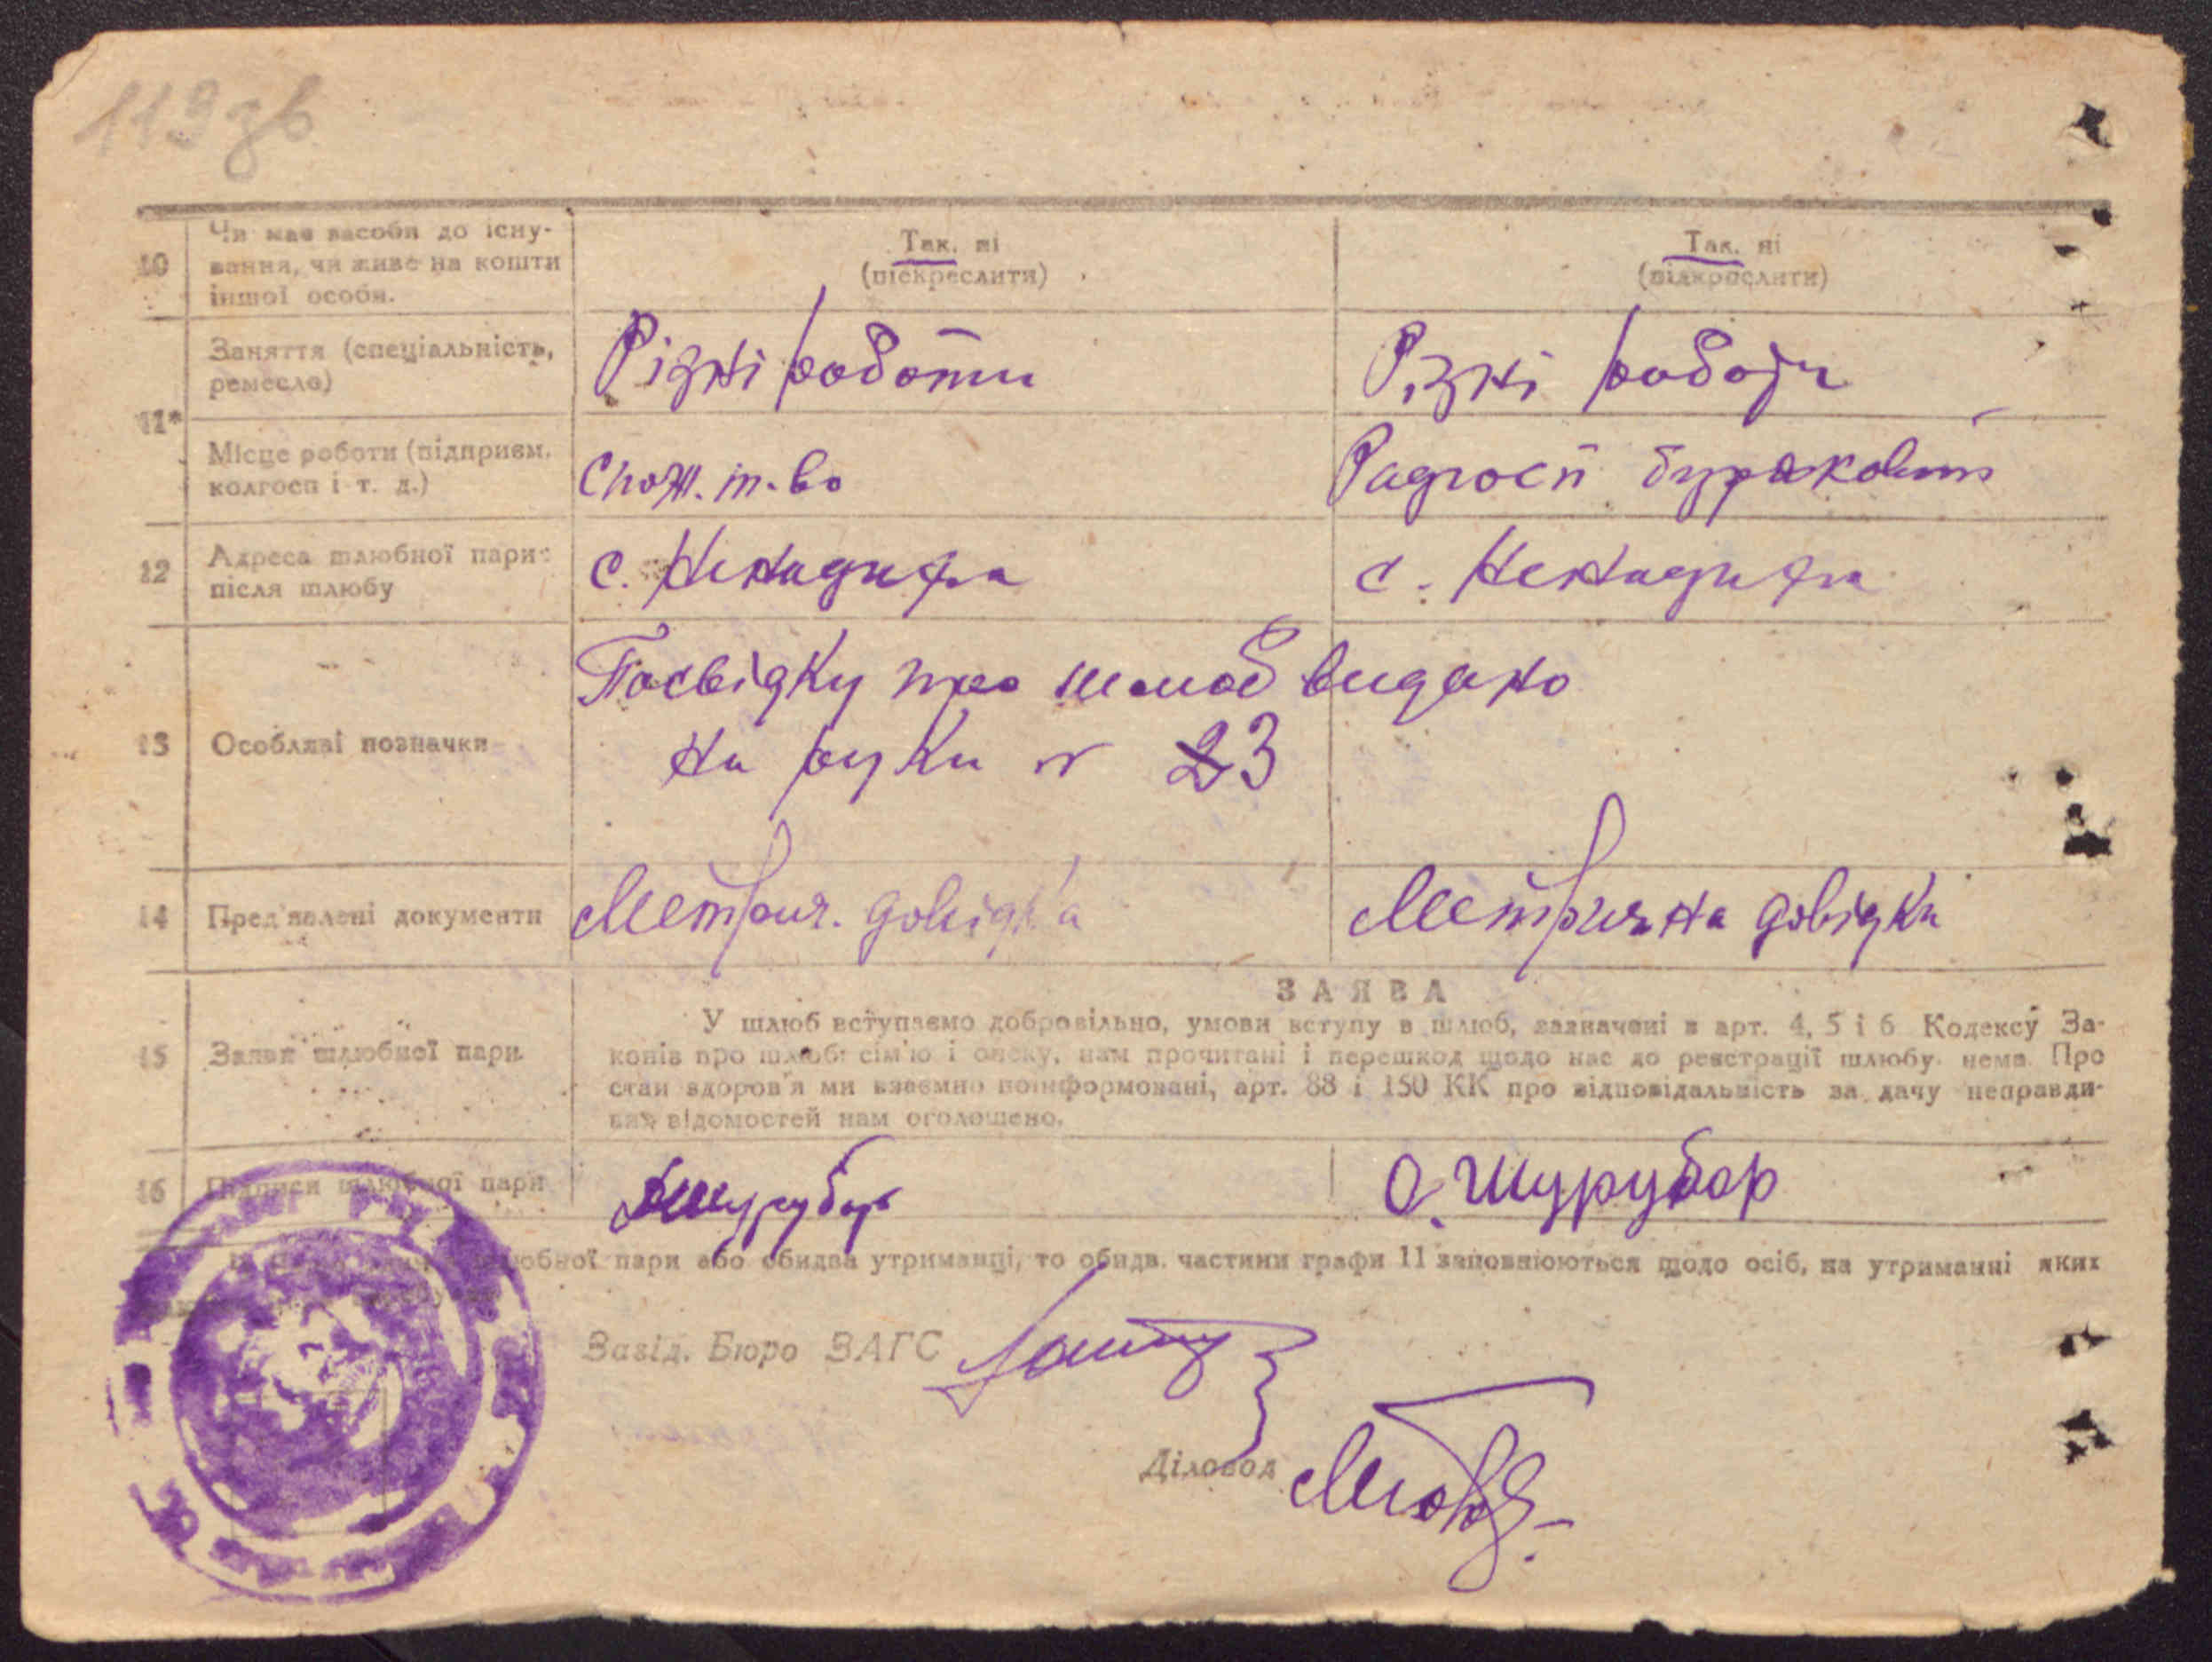 119 зв
10 Чи має засоби до існу- Так, ні Так, ні
вання, чи живе на кошти (підкреслити) (підкреслити)
іншої особи.
Заняття (спеціальність, Різні роботи Різні роботи
ремесло)
11*
Місце роботи (підприєм. Спож. т-во Радгосп буряковий
колгосп і т. д.)
12 Адреса шлюбної пари с. Ненадиха с. Ненадиха
після шлюбу
Посвідку про шлюб видано
13 Особливі позначки на руки № 23
14 Пред'явлені документи Метрич. довідка Метрична довідка
ЗАЯВА
У шлюб вступаємо добровільно, умови вступу в шлюб, зазначені в арт. 4, 5 і 6 Кодексу За-
15 Заява шлюбної пари конів про шлюб, сім'ю і опеку, нам прочитані і перешкод щодо нас до реєстрації шлюбу нема. Про
стан здоров'я ми взаємно поінформовані, арт. 88 і 150 КК про відповідальність за дачу неправди-
вих відомостей нам оголошено.
16 Підписи шлюбної пари Шурубор О. Шурубор
шлюбної пари або обидва утриманці, то обидв. частини графи 11 заповнюються щодо осіб, на утриманні яких
Завід. Бюро ЗАГС
Діловод